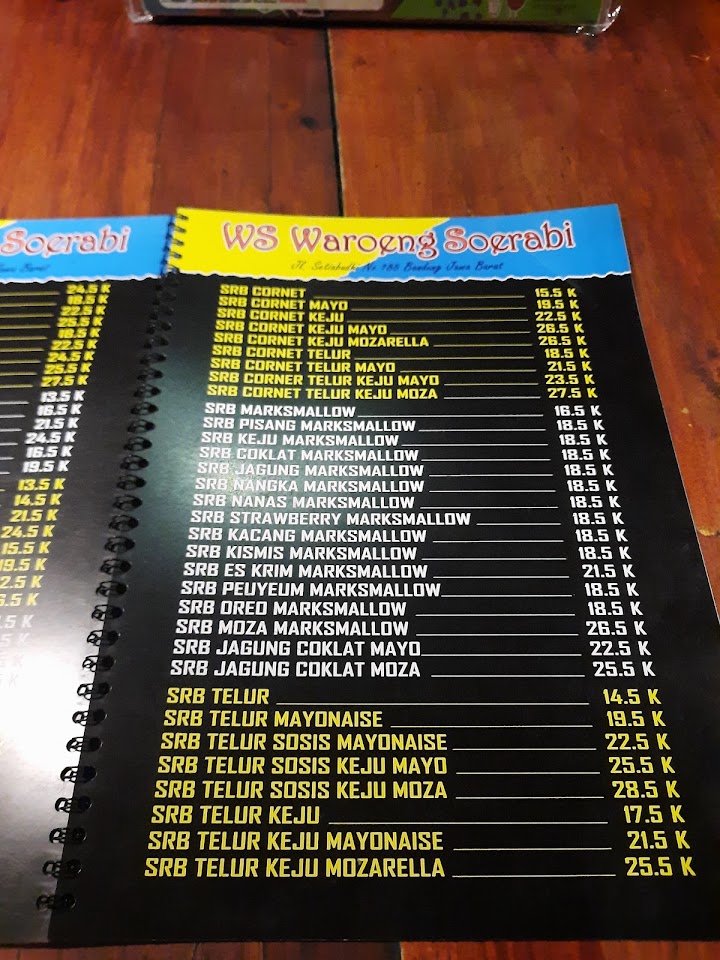 Soerabi
24.5 K
18.5 K
22.5 K
25.5 K
18.5 K
22.5 K
24.5 K
25.5 K
27.5 K
13.5 K
16.5 K
21.5 K
24.5 K
16.5 K
19.5 K
13.5 K
14.5 K
21.5 K
24.5 K
15.5 K
19.5 K
2.5 K
5.5 K
WS Waroeng Soerabi
Jl. Setiabudhi No 188 Bandung Jawa Barat
SRB CORNET 15.5 K
SRB CORNET MAYO 19.5 K
SRB CORNET KEJU 22.5 K
SRB CORNET KEJU MAYO 26.5 K
SRB CORNET KEJU MOZARELLA 26.5 K
SRB CORNET TELUR 18.5 K
SRB CORNET TELUR MAYO 21.5 K
SRB CORNER TELUR KEJU MAYO 23.5 K
SRB CORNET TELUR KEJU MOZA 27.5 K
SRB MARKSMALLOW 16.5 K
SRB PISANG MARKSMALLOW 18.5 K
SRB KEJU MARKSMALLOW 18.5 K
SRB COKLAT MARKSMALLOW 18.5 K
SRB JAGUNG MARKSMALLOW 18.5 K
SRB NANGKA MARKSMALLOW 18.5 K
SRB NANAS MARKSMALLOW 18.5 K
SRB STRAWBERRY MARKSMALLOW 18.5 K
SRB KACANG MARKSMALLOW 18.5 K
SRB KISMIS MARKSMALLOW 18.5 K
SRB ES KRIM MARKSMALLOW 21.5 K
SRB PEUYEUM MARKSMALLOW 18.5 K
SRB OREO MARKSMALLOW 18.5 K
SRB MOZA MARKSMALLOW 26.5 K
SRB JAGUNG COKLAT MAYO 22.5 K
SRB JAGUNG COKLAT MOZA 25.5 K
SRB TELUR 14.5 K
SRB TELUR MAYONAISE 19.5 K
SRB TELUR SOSIS MAYONAISE 22.5 K
SRB TELUR SOSIS KEJU MAYO 25.5 K
SRB TELUR SOSIS KEJU MOZA 28.5 K
SRB TELUR KEJU 17.5 K
SRB TELUR KEJU MAYONAISE 21.5 K
SRB TELUR KEJU MOZARELLA 25.5 K